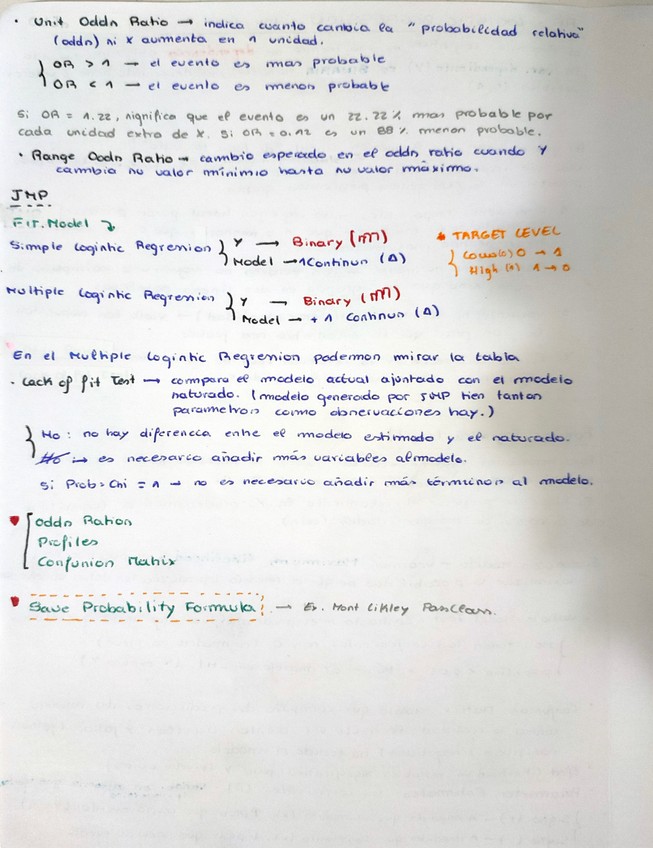 · Unit Odds Ratio → indica cuanto cambia la "probabilidad relativa"
(odds) si x aumenta en 1 unidad.
OR > 1 → el evento es mas probable
OR < 1 → el evento es menos probable
Si OR = 1.22, significa que el evento es un 22.22% mas probable por
cada unidad extra de x. Si OR = 0.12 es un 88% menos probable.
· Range Odds Ratio → cambio esperado en el odds ratio cuando Y
cambia su valor mínimio hasta su valor máximo.
JMP
Fit. Model
Simple Logistic Regression
Y → Binary
Model → 1 Continus (Δ)
TARGET LEVEL
0 → 1
High 1 → 0
Multiple Logistic Regression
Y → Binary
Model → + 1 Continus (Δ)
En el Multiple Logistic Regression podemos mirar la tabla
· Lack of fit Test → compara el modelo actual ajustado con el modelo
saturado. (modelo generado por JMP tien tantos
parametros como observaciones hay.)
Ho: no hay diferencia entre el modelo estimado y el saturado.
→ es necesario añadir más variables al modelo.
Si Prob>Chi = 1 → no es necesario añadir más términos al modelo.
Odds Ratios
Profiles
Confusion Matrix
Save Probability Formula → Ex. Most Likley